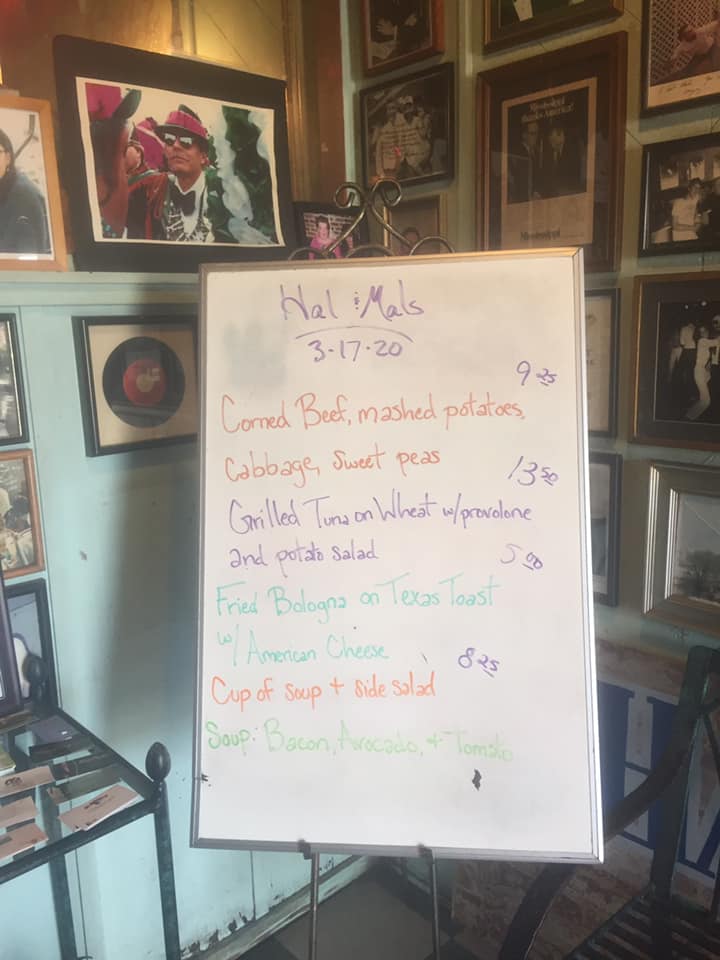 Hal & Mals
3-17-20
9 25
Corned Beef, mashed potatoes,
Cabbage, sweet peas
13 50
Grilled Tuna on Wheat w/provolone
and potato salad
5 00
Fried Bologna on Texas Toast
w/ American Cheese
8 25
Cup of soup + side salad
Soup: Bacon, Avocado, + Tomato
Mississippi
thanks America!
Mississippi